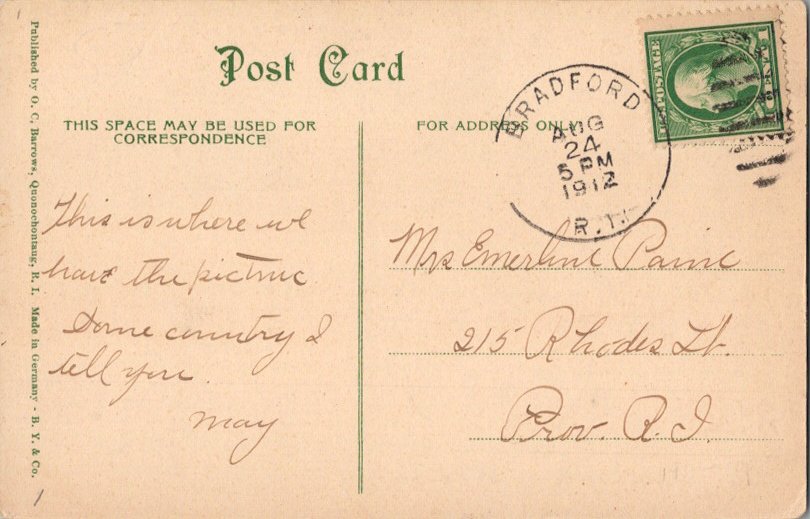 Post Card
THIS SPACE MAY BE USED FOR
CORRESPONDENCE
FOR ADDRESS ONLY
BRADFORD
AUG
24
5 PM
1912
R.I.
POSTAGE
Published by O. C. Barrows, Quonochontaug, R. I. Made in Germany - B. Y. & Co.
This is where we
have the picture
Some country I
tell you
May
Mrs Emerline Paine
215 Rhodes St.
Prov. R.I.